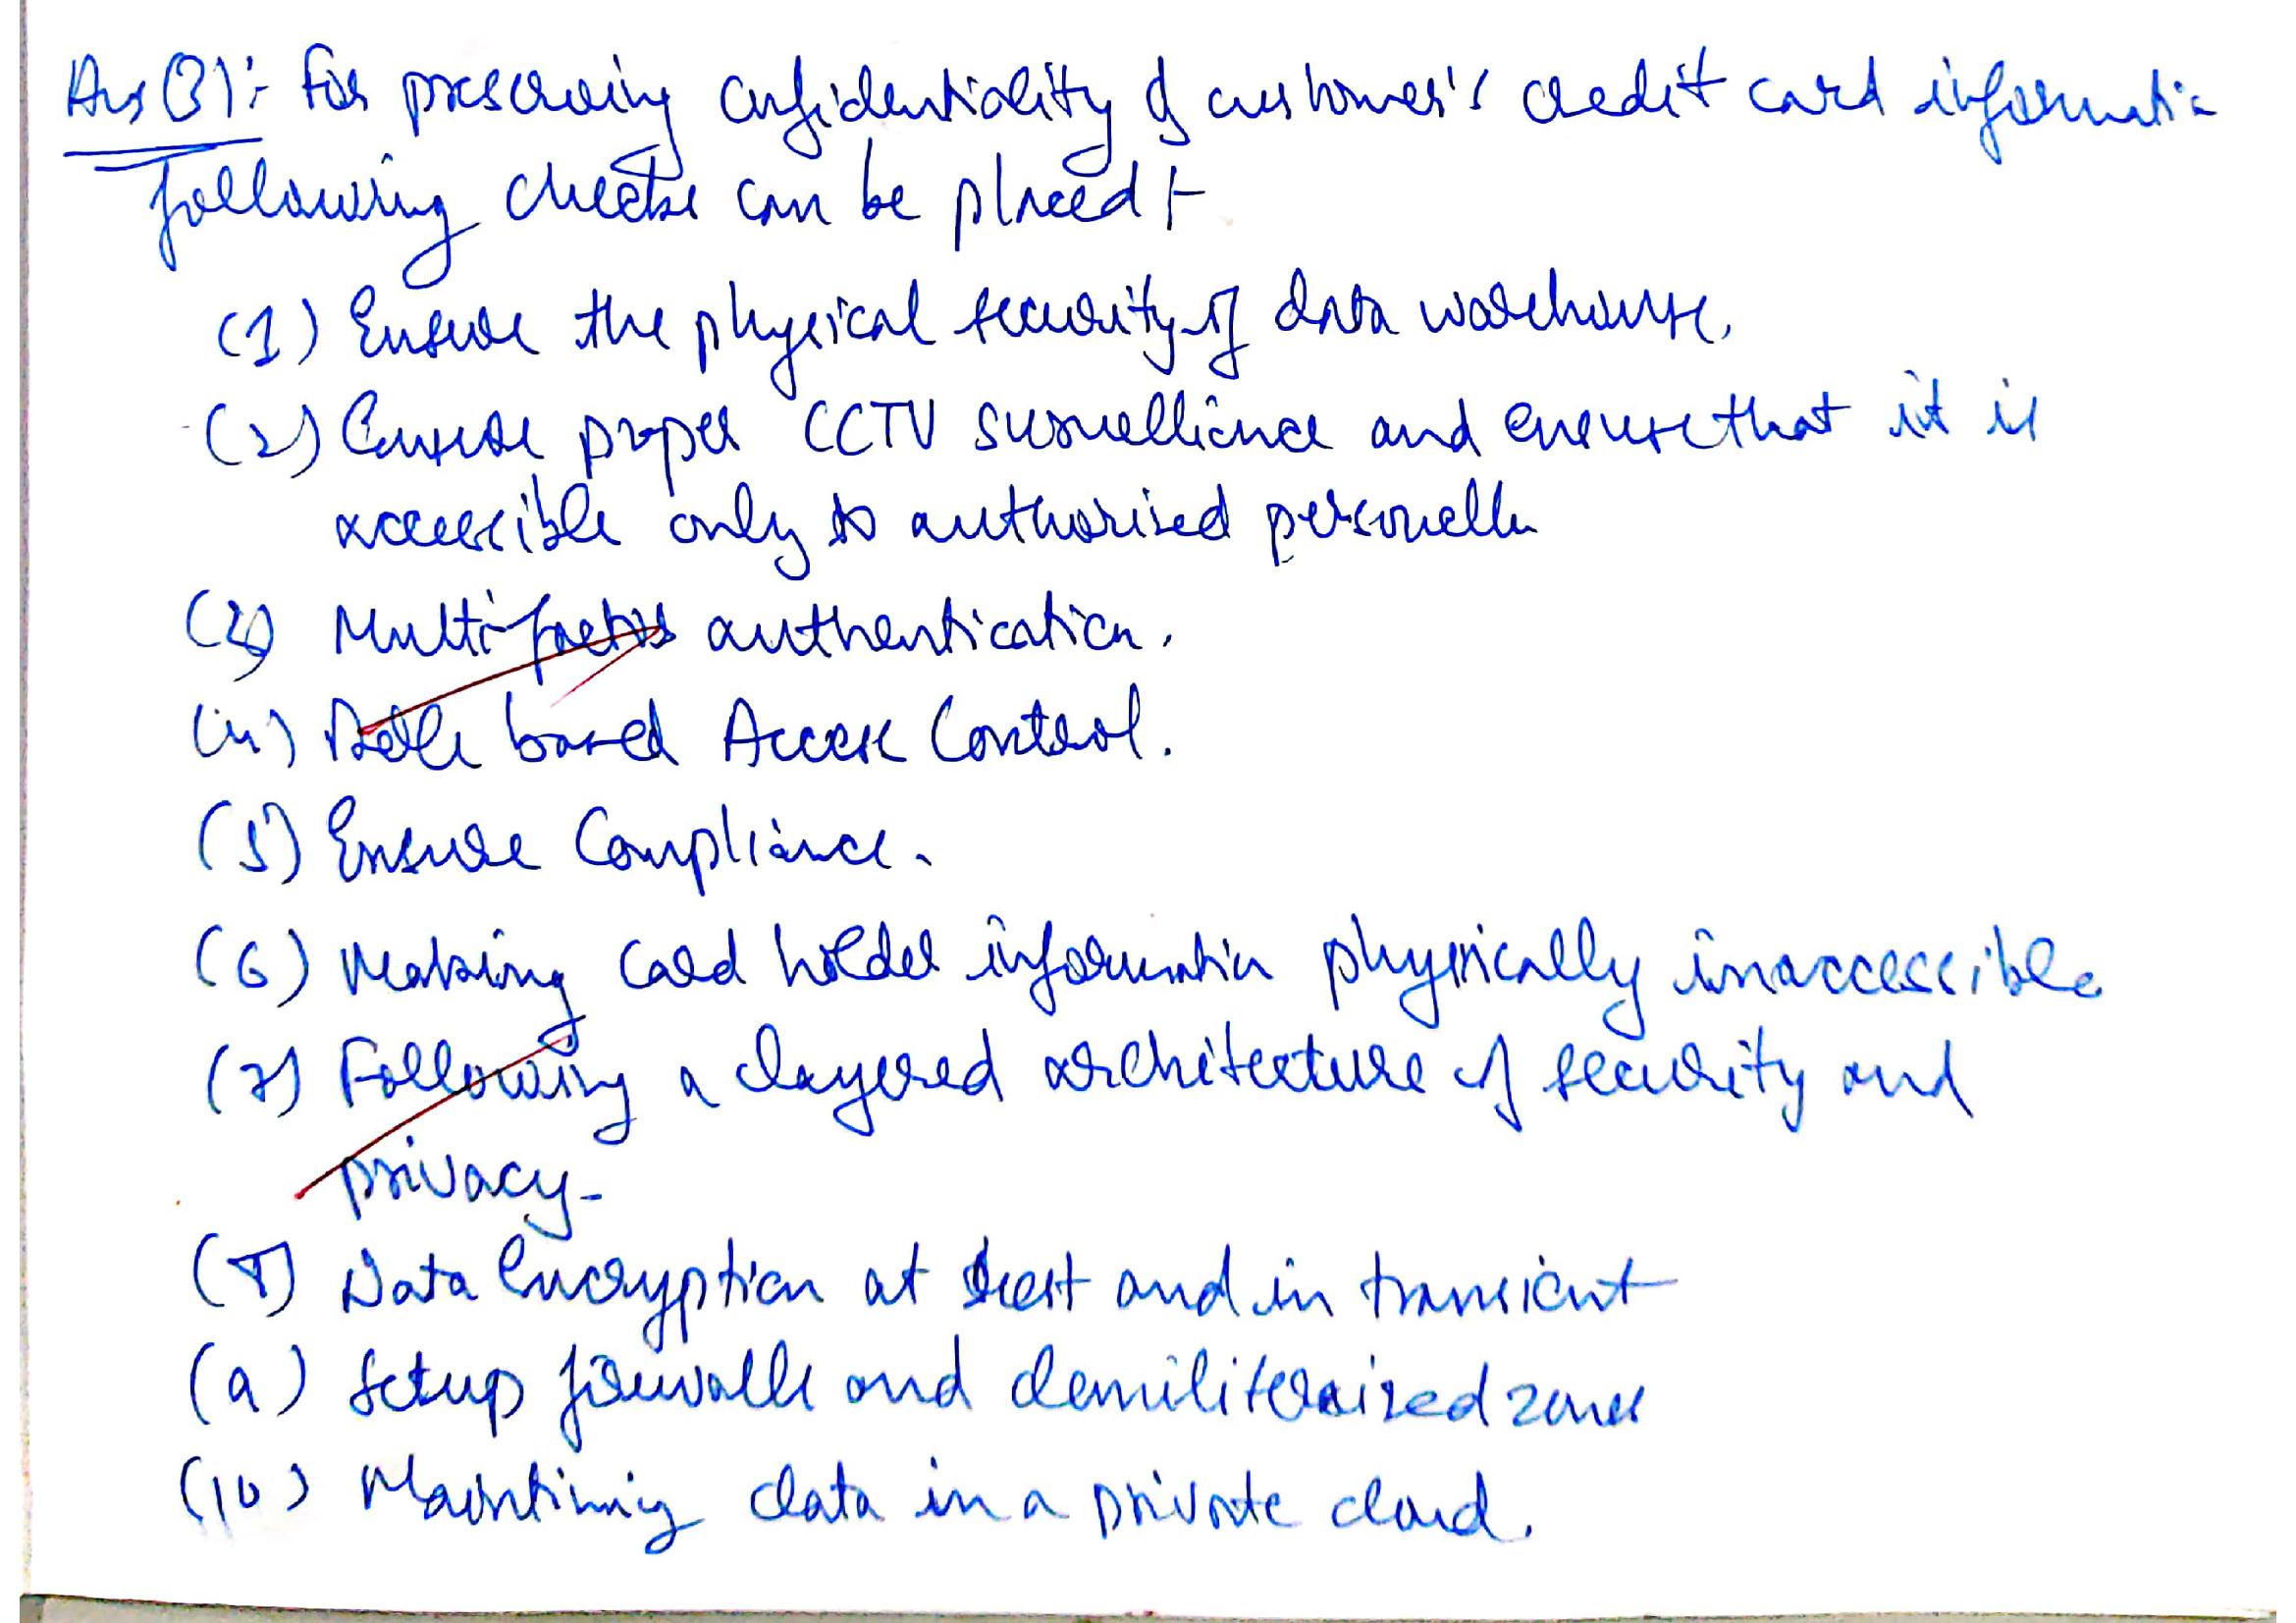 Ans (3):- For preserving confidentiality of customer's credit card informatin
following checks can be placed :-
(1) Ensure the physical security of data warehouse.
(2) Ensure proper CCTV survellience and ensure that it is
accessible only to authorised personelle
(3) Multi-factor authentication.
(4) Role based Access Control.
(5) Ensure Compliance.
(6) Making Card holder information physically inaccessible.
(7) Following a layered architecture of security and
privacy.
(8) Data Encryption at rest and in transient
(9) Setup firewalls and demiliteraized zones
(10) Maintining data in a private cloud.